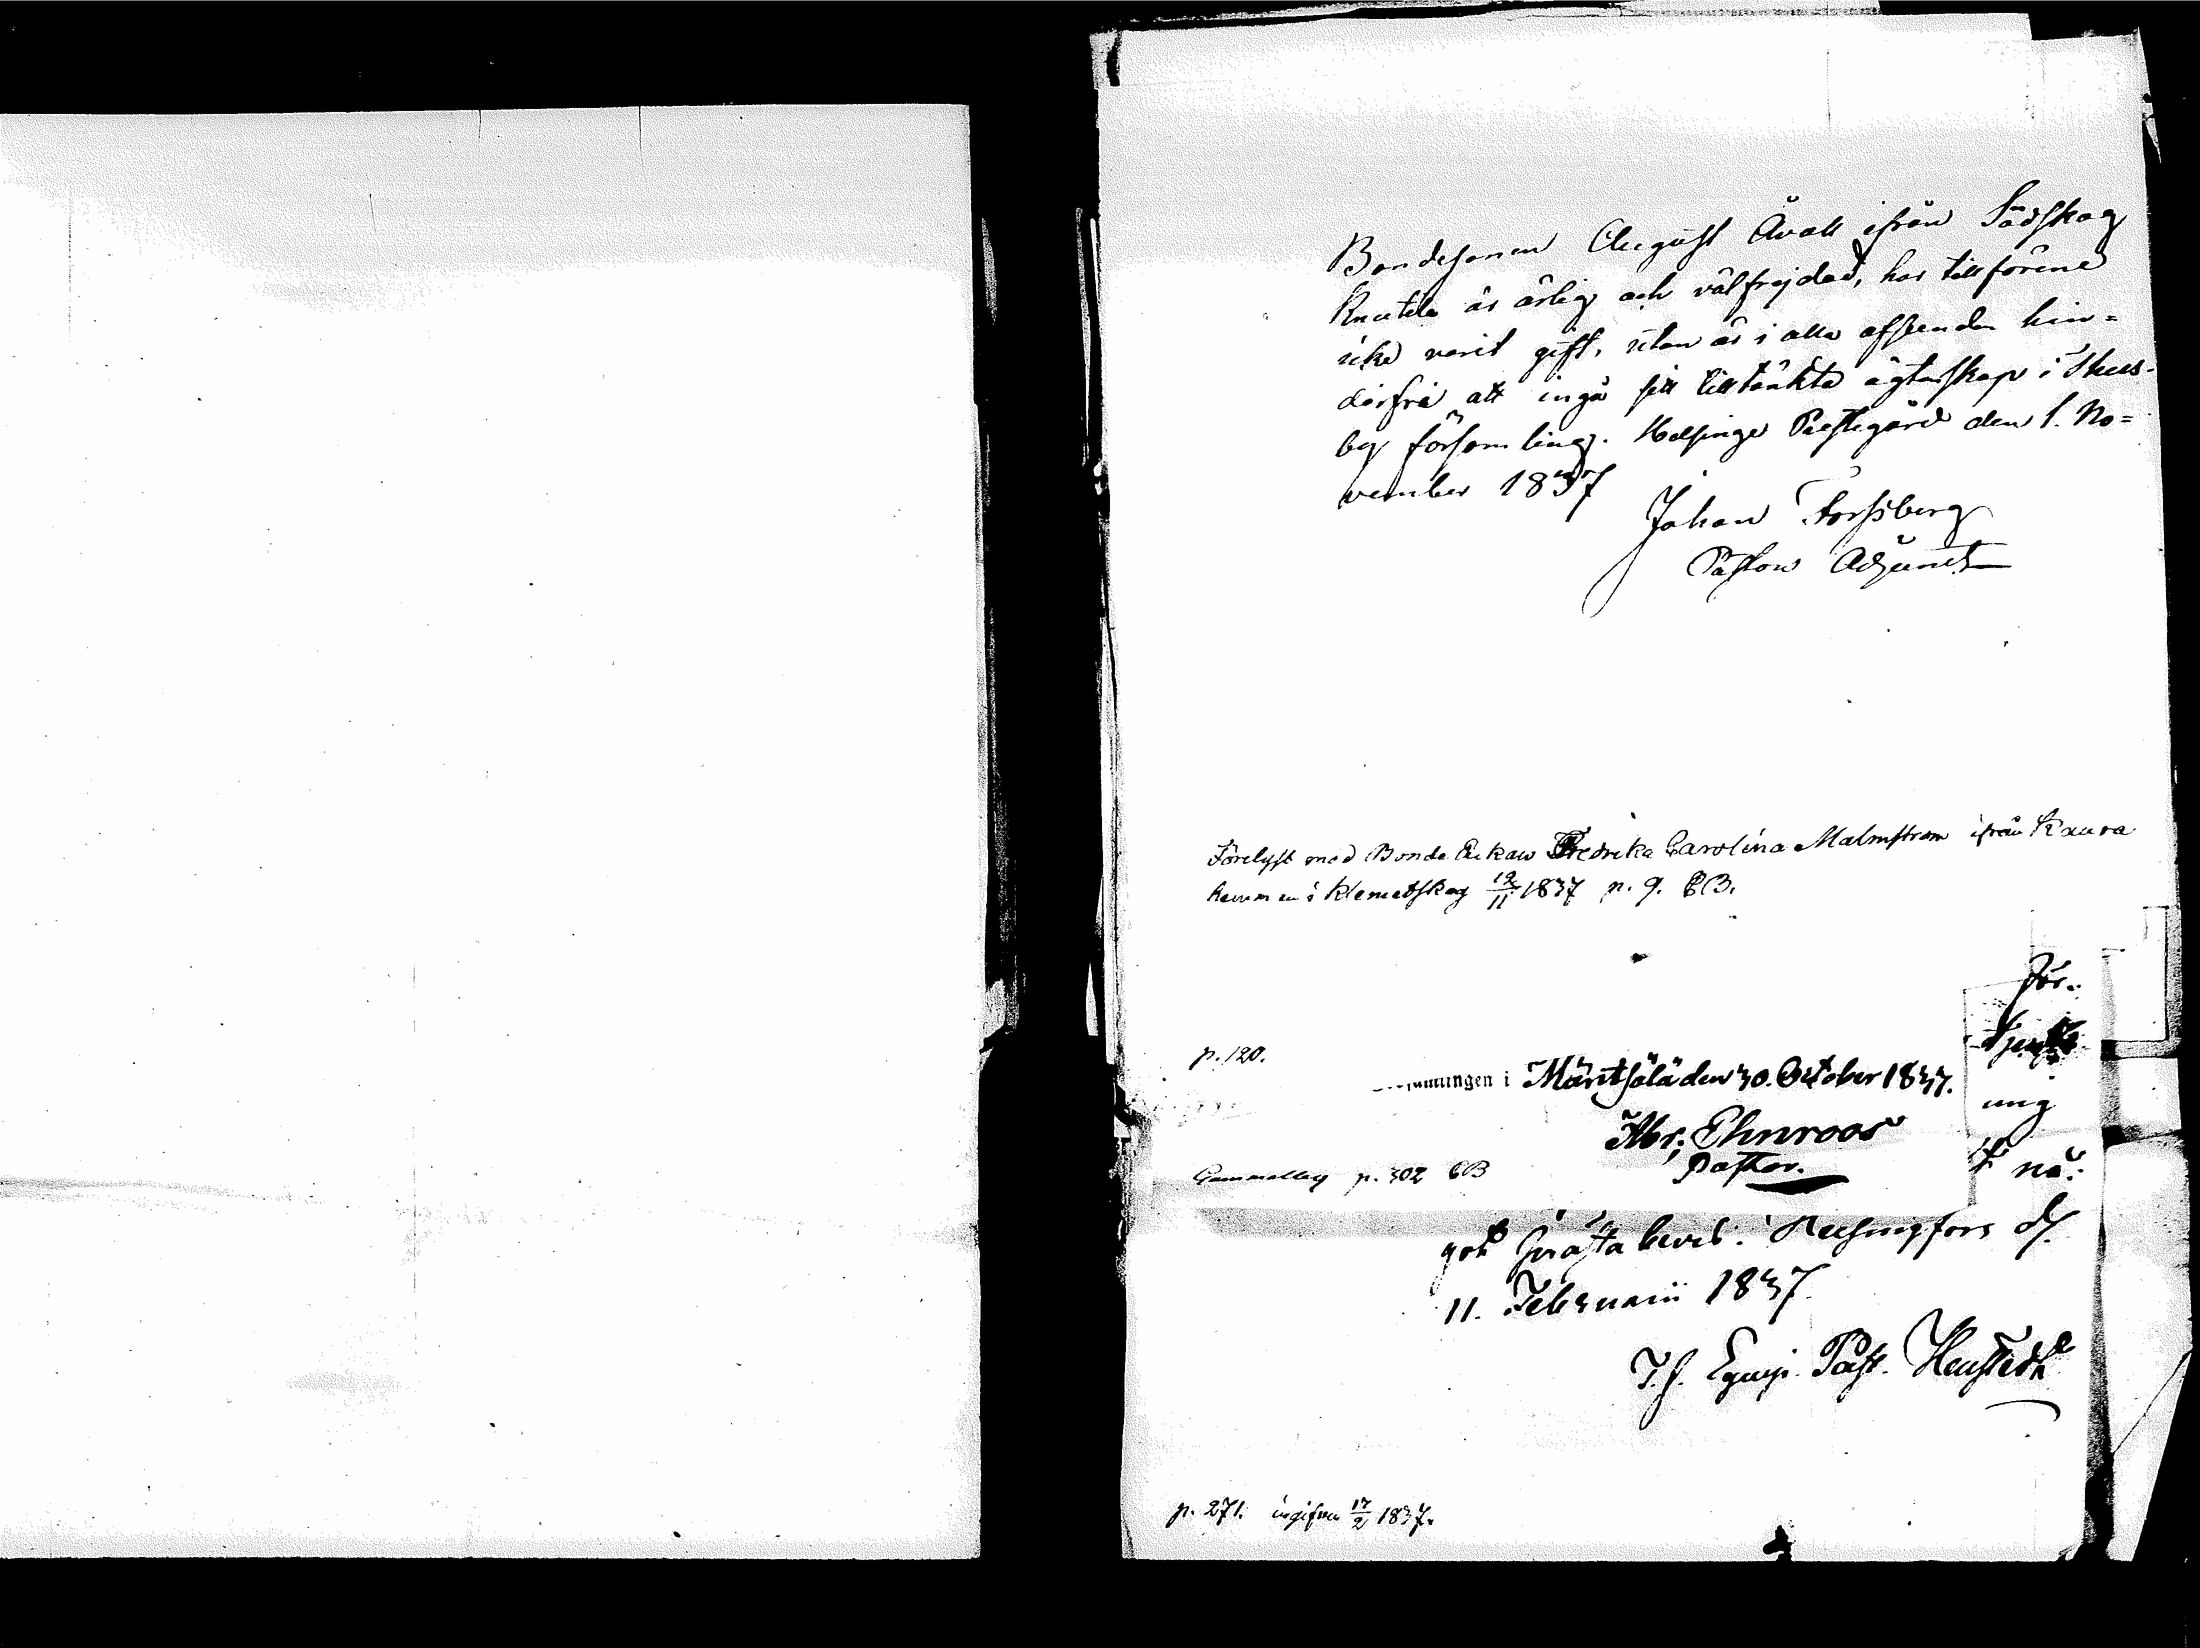 Bondesonen August Åvall ifrån Sädskog
Knutila är ärlig och välfrejdad, har tillförene
icke varit gift, utan är i alla afseenden hin=
dersfri att ingå sitt tilltänkta ägtenskap i Thus-
by församling. Helsinge Prestegård den 1. No=
vember 1837
Johan Forssberg
Pastors Adjunct
Förelyst med Bonde Enkan Fredrika Carolina Malmström ifrån Kaura
i Klemetskog 12/11 1837 p. 9. CB.
för.
p. 120.
i Mäntsälä den 30. October 1837.
ung
Abr. Ehnroos
Pastor.
Gammelby p. 302 CB
nö:
Prästa bevis. Helsingfors d.
11. Februarii 1837.
Past.
p. 271. ingifven 17/2 1837.